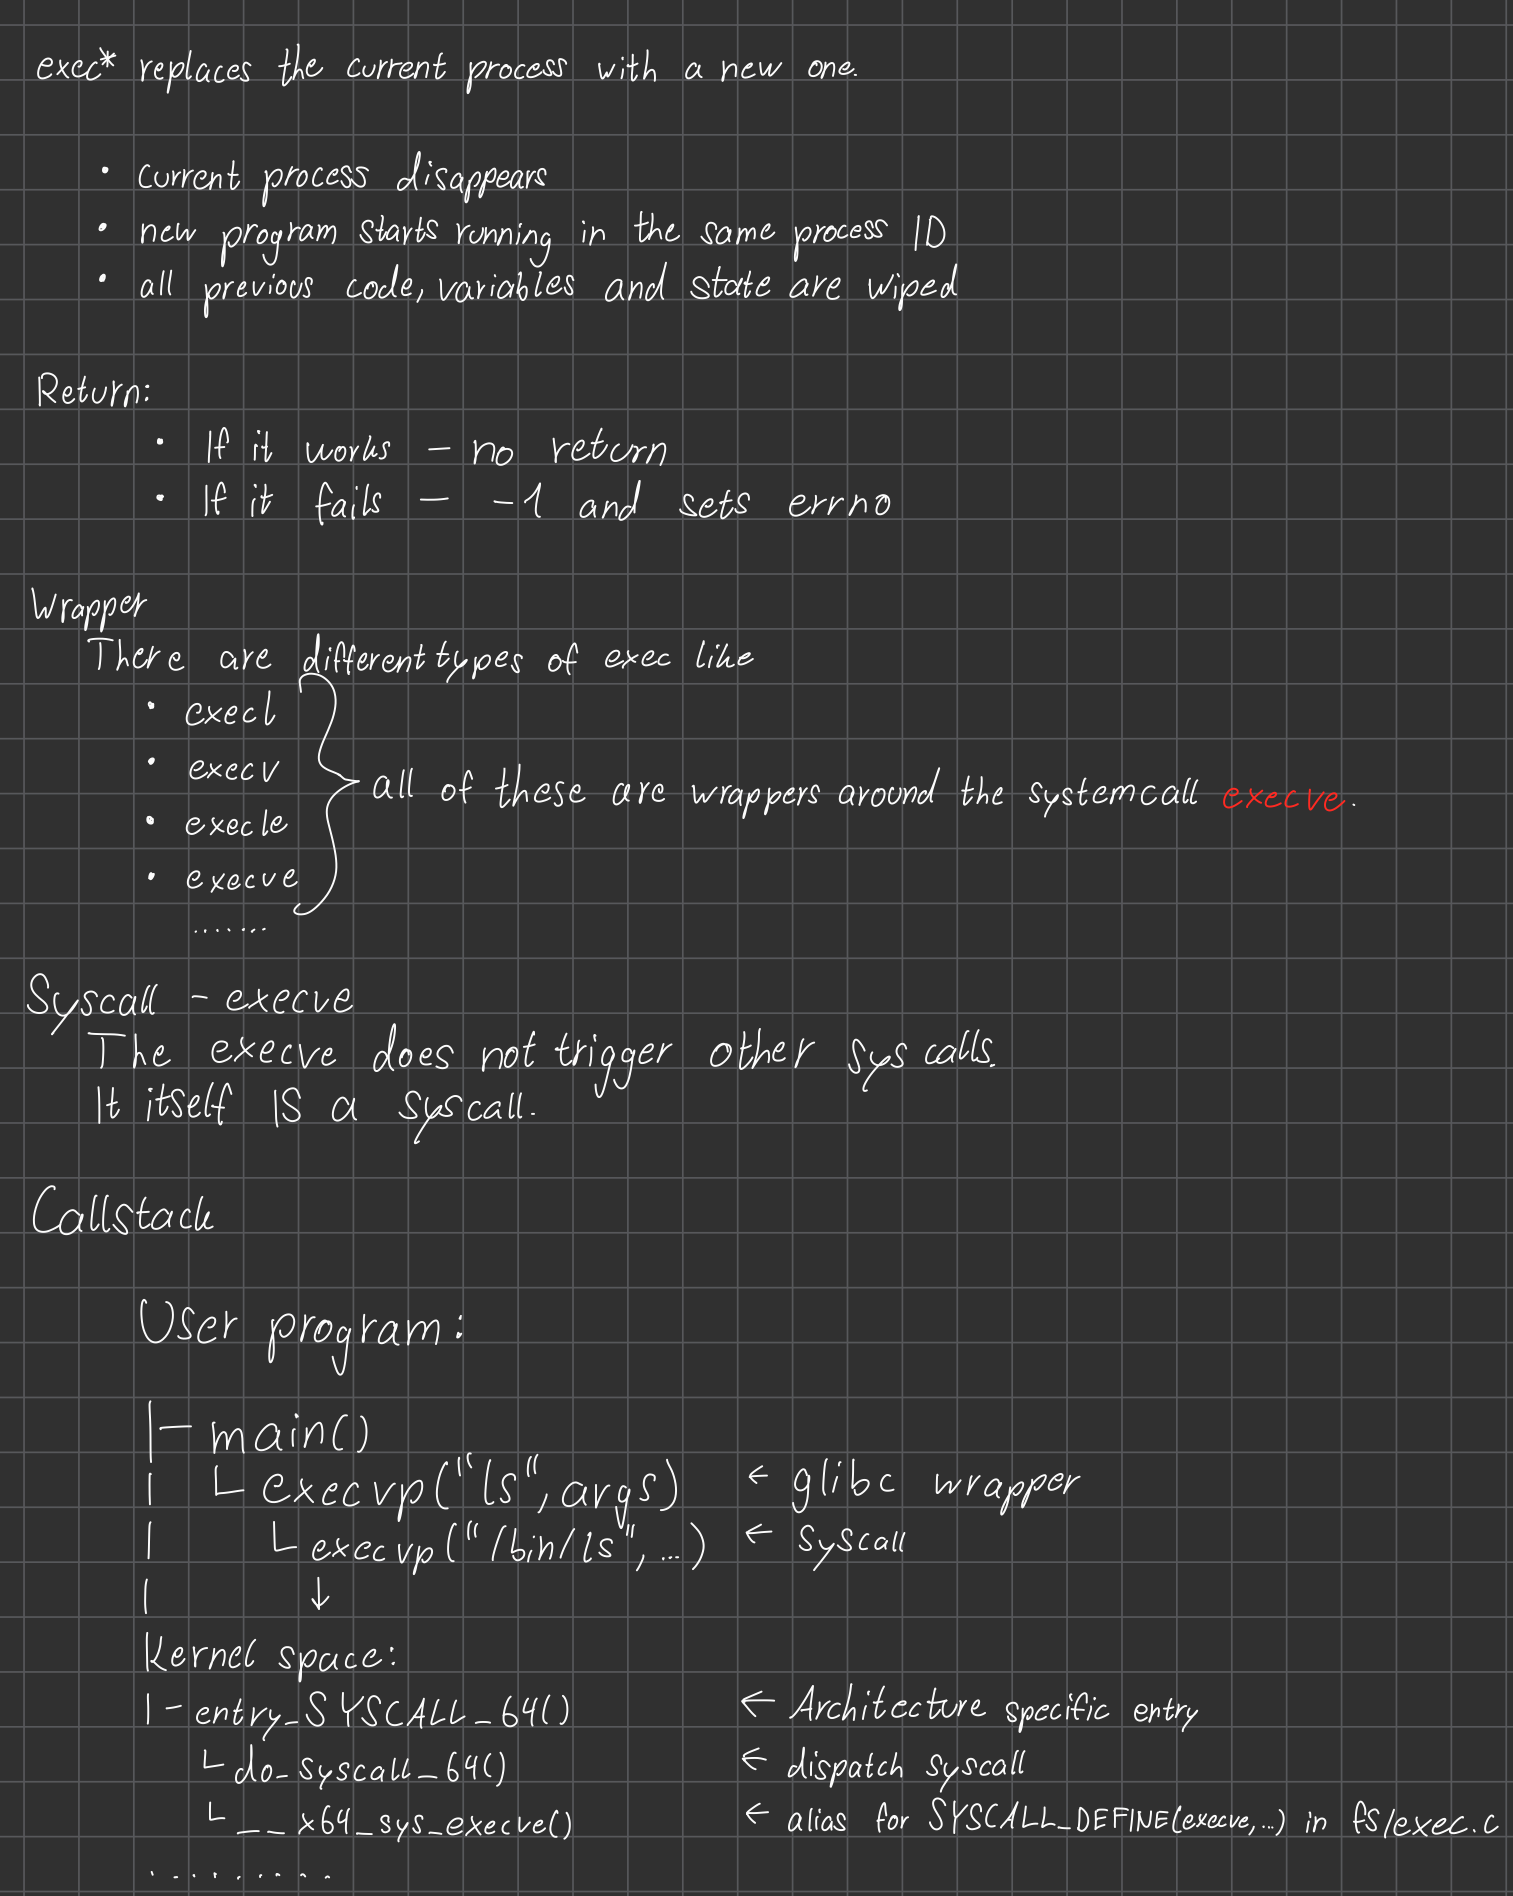 exec* replaces the current process with a new one.
• current process disappears
• new program starts running in the same process ID
• all previous code, variables and state are wiped
Return:
• If it works – no return
• If it fails – -1 and sets errno
Wrapper
There are different types of exec like
• execl
• execv
• execle
• execve
.......
all of these are wrappers around the systemcall execve.
Syscall - execve
The execve does not trigger other sys calls.
It itself IS a syscall.
Callstack
User program:
|– main()
| └ execvp("ls", args) ← glibc wrapper
| └ execvp("/bin/ls", ...) ← syscall
| ↓
Kernel space:
|- entry_SYSCALL_64() ← Architecture specific entry
└ do_syscall_64() ← dispatch syscall
└ __x64_sys_execve() ← alias for SYSCALL_DEFINE(execve,...) in fs/exec.c
.........